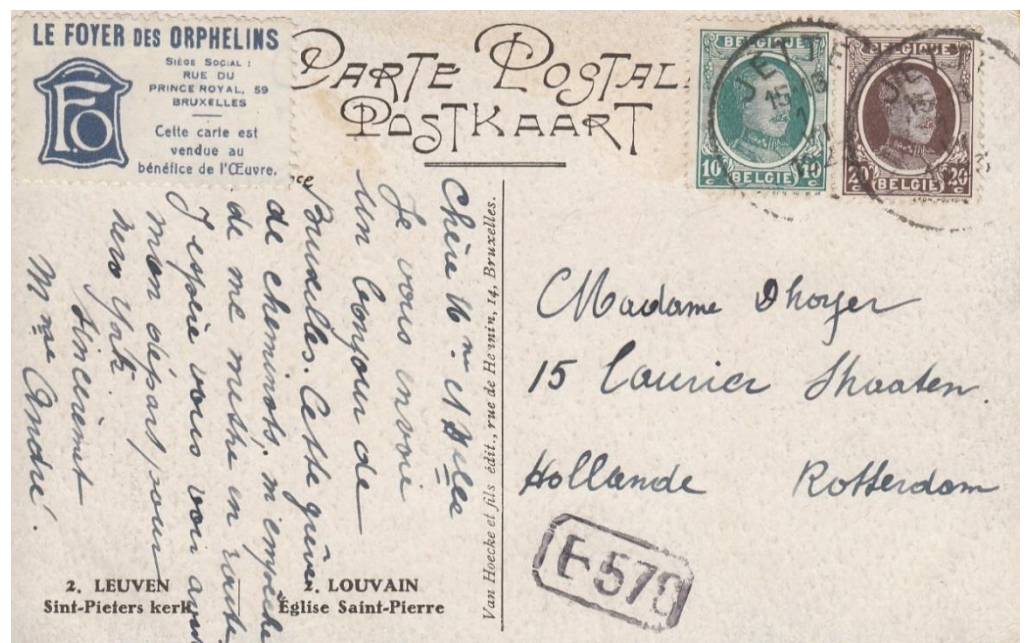 LE FOYER DES ORPHELINS
SIÈGE SOCIAL :
RUE DU
PRINCE ROYAL, 59
BRUXELLES
Cette carte est
vendue au
bénéfice de l'Œuvre.
FO
CARTE POSTALE
POSTKAART
BELGIQUE
10 c 10 c
BELGIE
BELGIQUE
20 c 20 c
BELGIE
JETTE
15
JETTE
Chère Mme et Melle
Je vous envoie
un bonjour de
Bruxelles. Cette grève
de cheminots, m'empêche
de me mettre en route.
J'espère vous voir avant
mon départ pour
New York
Sincèremt
Mme André.
Van Hoecke et fils édit., rue de Hennin, 14, Bruxelles.
Madame Dhoyer
15 Laurier Shaaten
Hollande Rotterdam
E-570
2. LEUVEN
Sint-Pieters kerk
2. LOUVAIN
Église Saint-Pierre